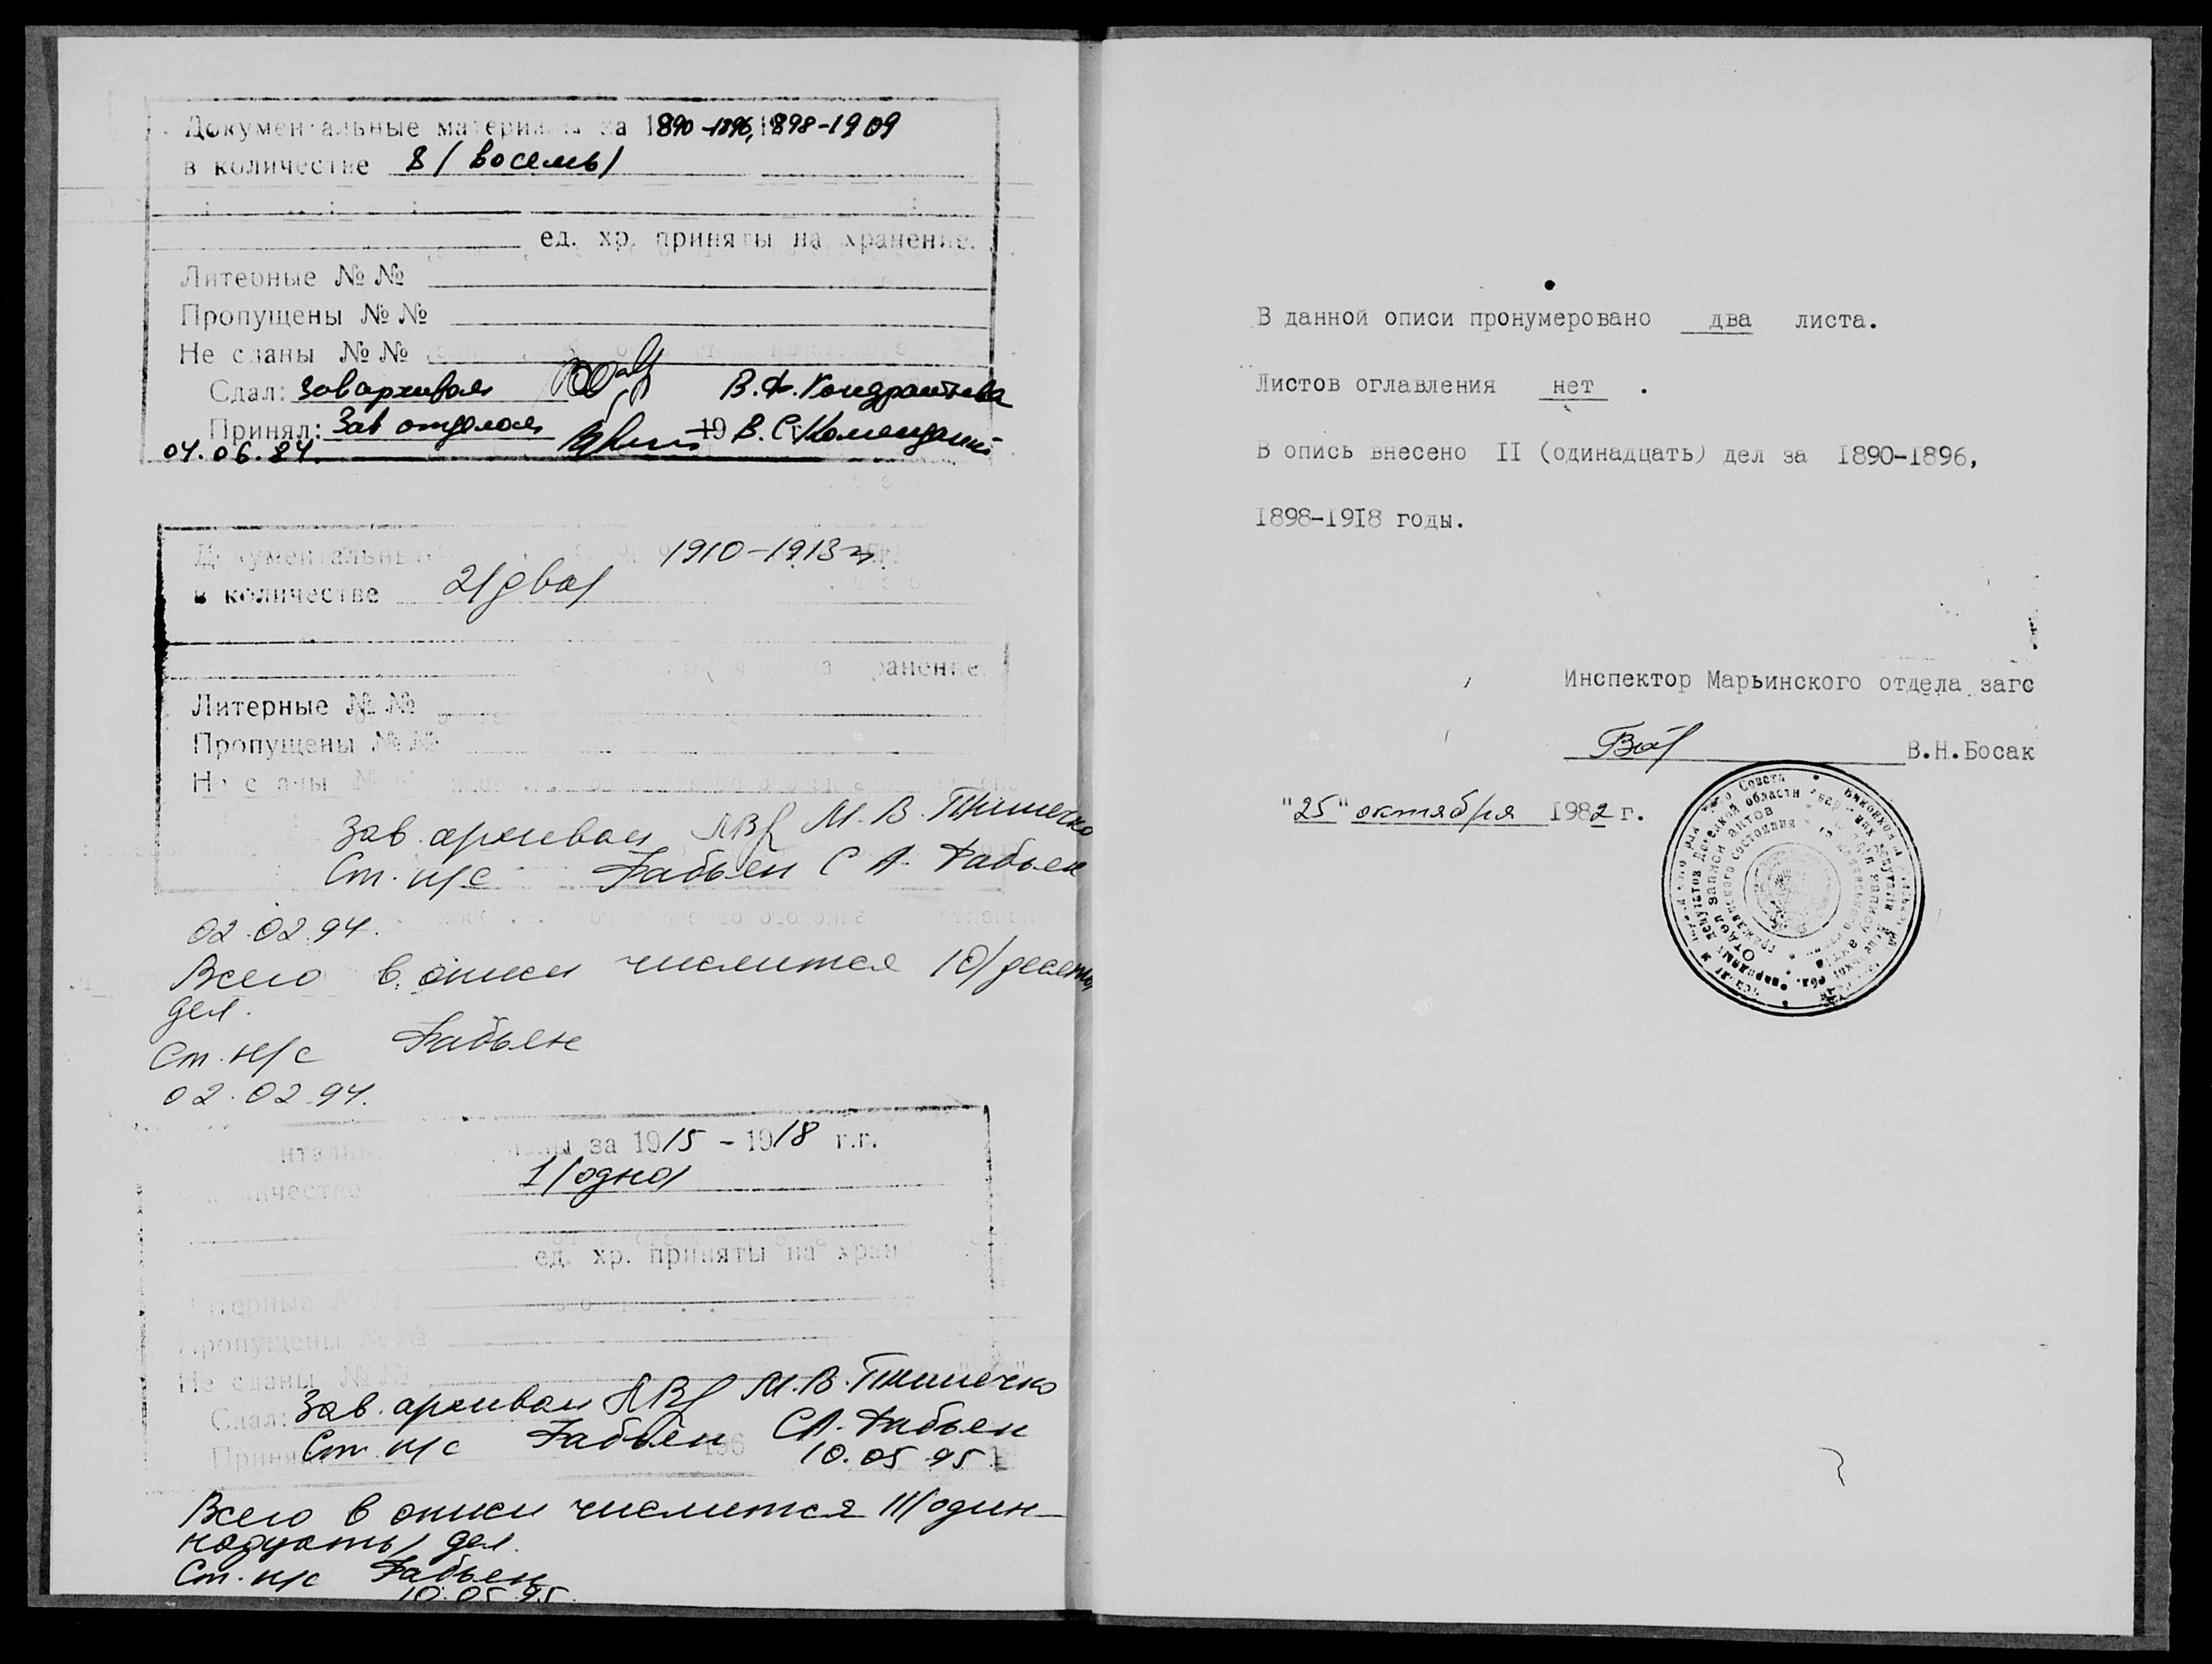 Документальные материалы за 1890-1896, 1898-1909
в количестве 8/восемь/
ед. хр. приняты на хранение.
Литерные №№
Пропущены №№
Не сданы №№
Сдал: Зав архивом В.Ф. Кондратьева
Принял: Зав отделом 19 В.С.
04.06.84.
Документальные 1910-1913
в количестве 2/два/
хранение.
Литерные №№
Пропущены №№
Не сданы №№
Зав. архивом М.В.
Ст. н/с Фабьен С.А. Фабьен
02.02.94.
Всего в описи числится 10/десять/
дел.
Ст. н/с Фабьен
02.02.94.
за 1915 - 1918 г.г.
количестве 1/одно/
ед. хр. приняты на хран
Литерные №№
Пропущены №№
Не сданы №№
Сдал: Зав. архивом М.В.
Принял Ст. н/с Фабьен С.А. Фабьен
196 10.05.95
Всего в описи числится 11/один-
надцать/ дел.
Ст. н/с Фабьен
10.05.95.
В данной описи пронумеровано два листа.
Листов оглавления нет .
В опись внесено II (одинадцать) дел за 1890-1896,
1898-19I8 годы.
Инспектор Марьинского отдела загс
В.Н.Босак
"25" октября 1982 г.
Отдел записи актов
гражданского состояния